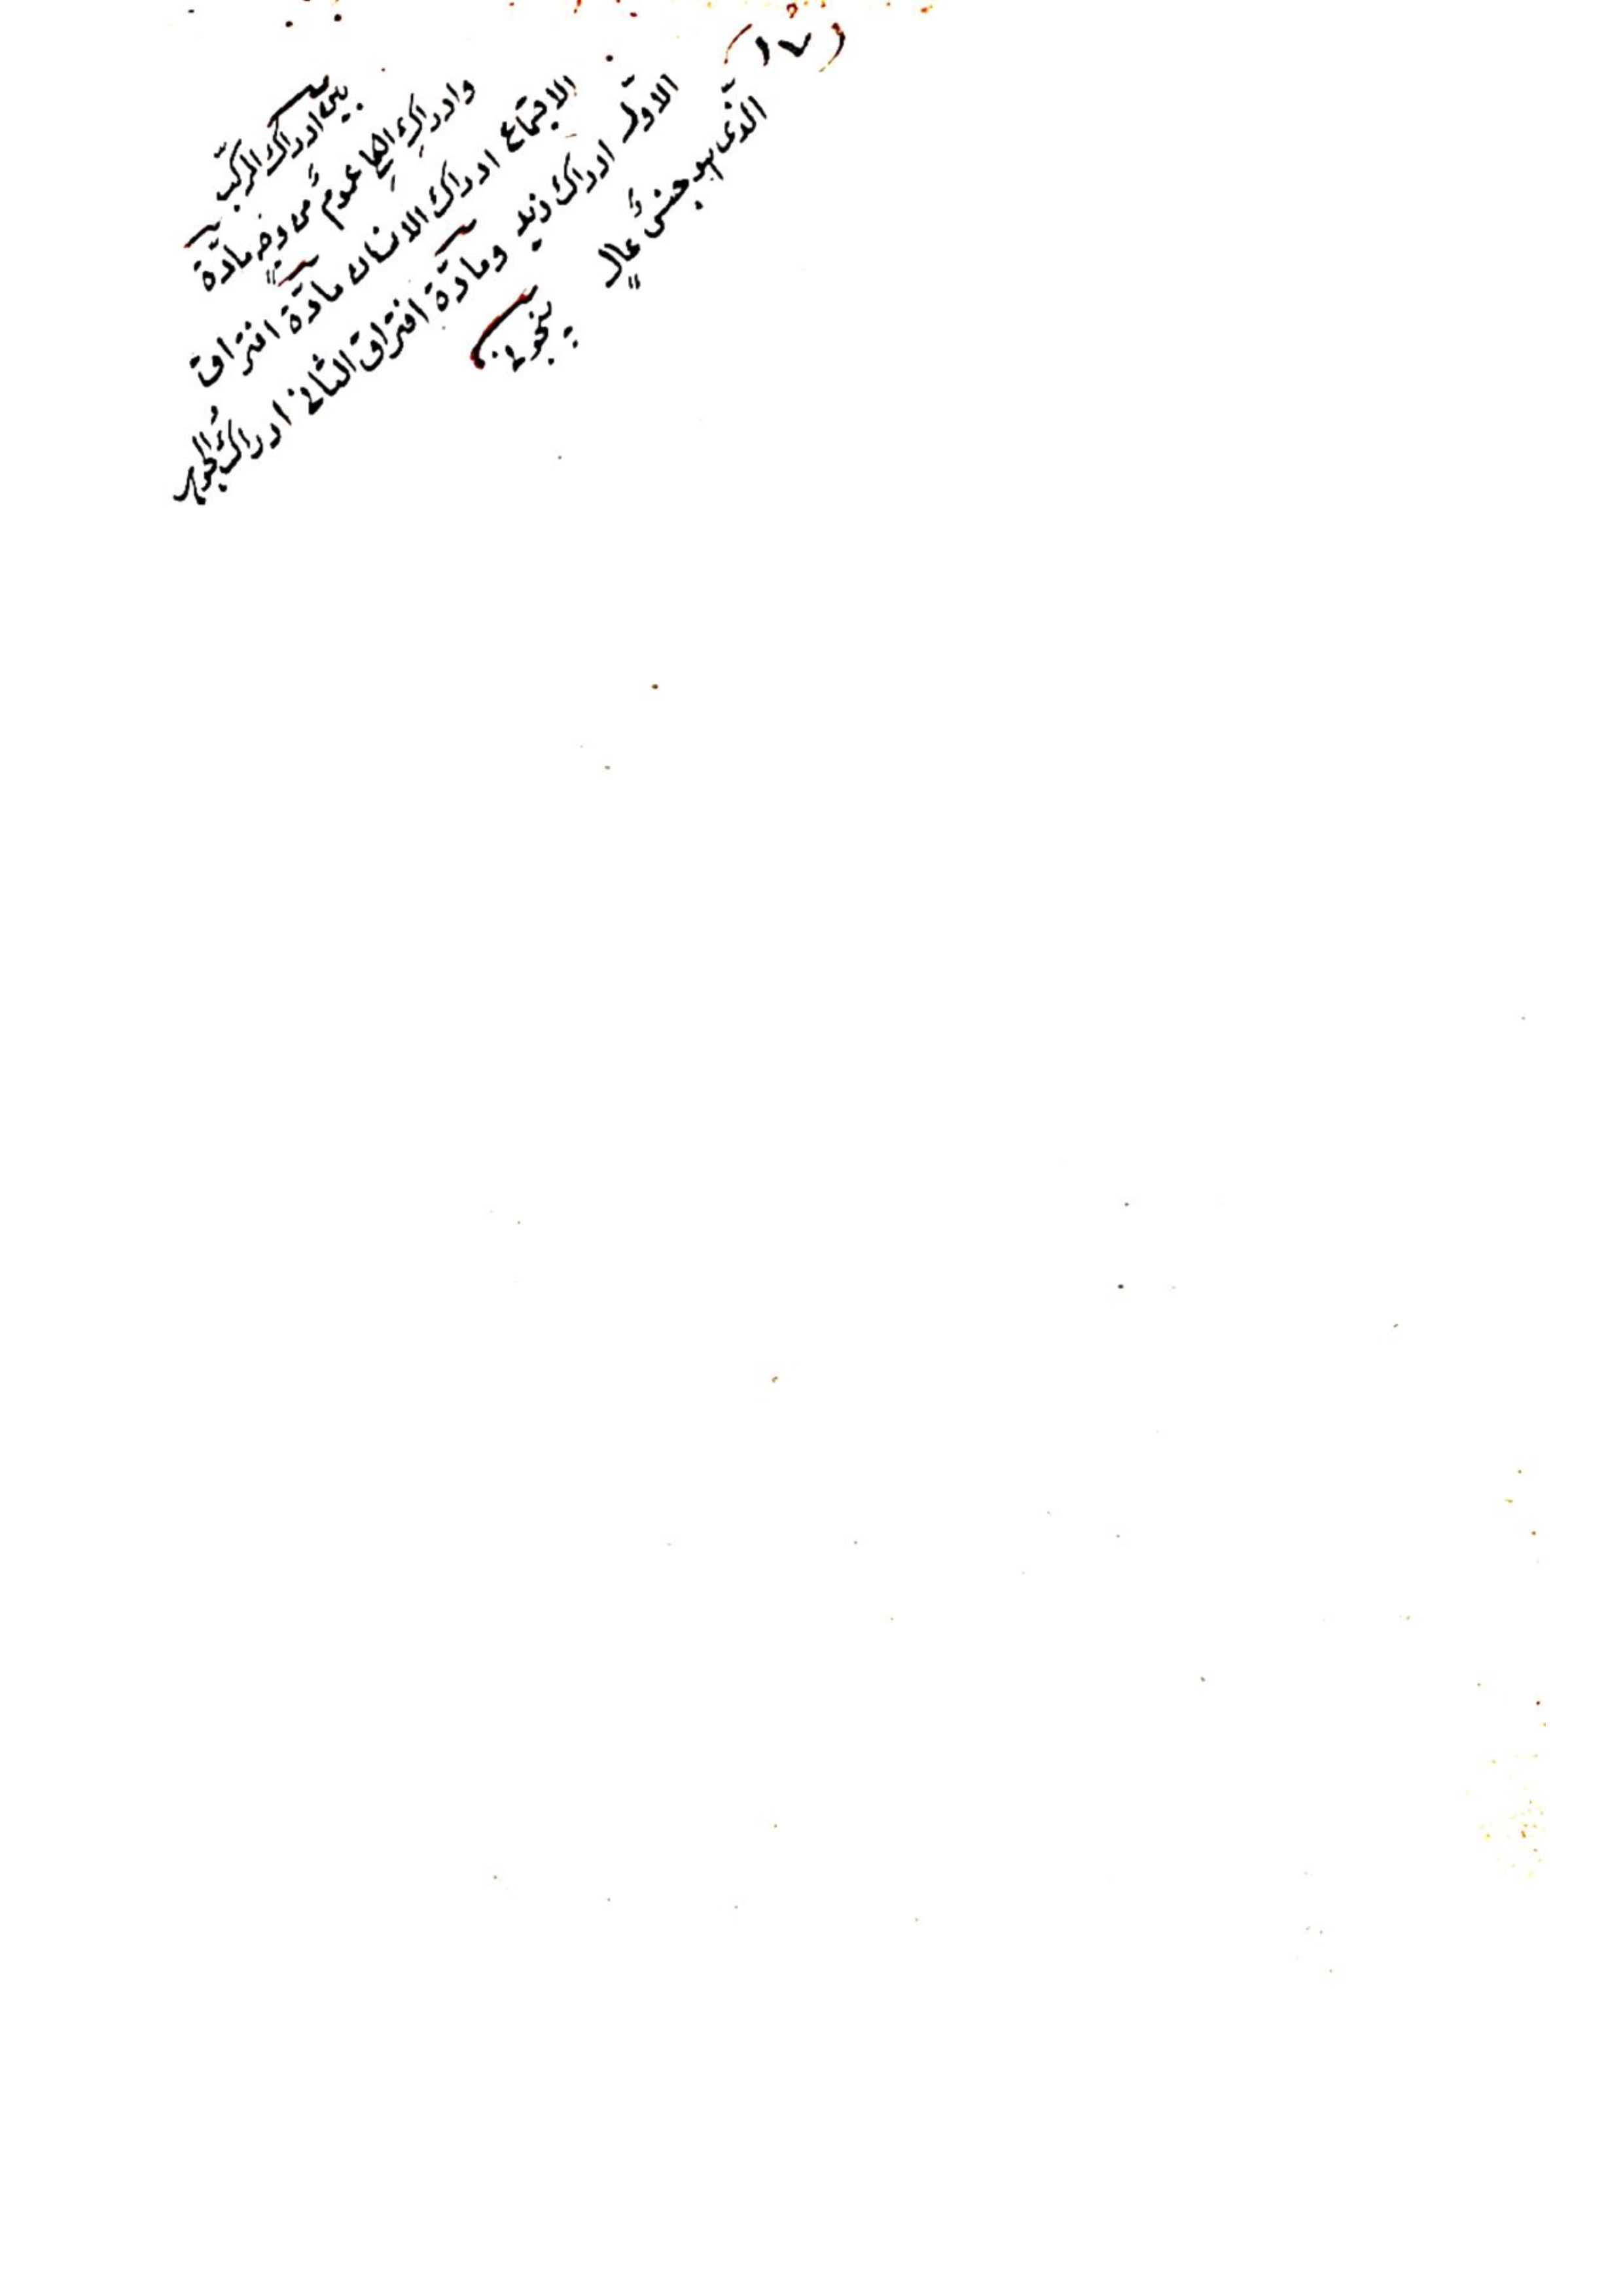 (١٧)
بين ادراك المركب
وادراك الكلي عموم من وجه مادة
الاجتماع ادراك الانسان مادة افتراق
الاول ادراك زيد ومادة افتراق الثاني ادراك الجوهر
الذي هو جنس عال